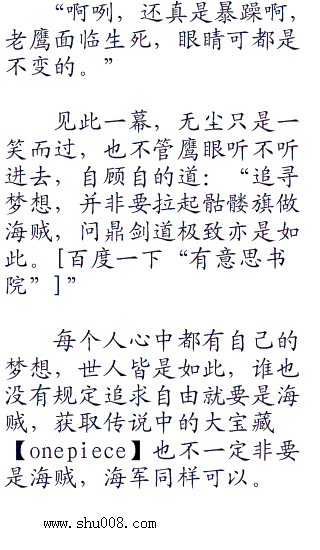 “啊咧，还真是暴躁啊，
老鹰面临生死，眼睛可都是
不变的。”
见此一幕，无尘只是一
笑而过，也不管鹰眼听不听
进去，自顾自的道：“追寻
梦想，并非要拉起骷髅旗做
海贼，问鼎剑道极致亦是如
此。[百度一下“有意思书
院”]”
每个人心中都有自己的
梦想，世人皆是如此，谁也
没有规定追求自由就要是海
贼，获取传说中的大宝藏
【onepiece】也不一定非要
是海贼，海军同样可以。
www.shu008.com